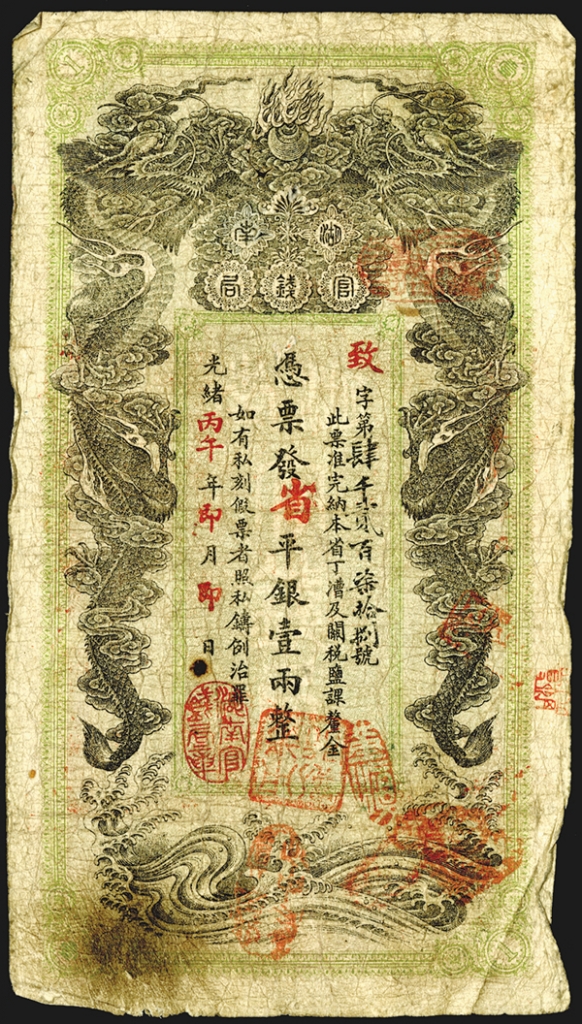 湖南
官錢局
致字第肆千貳百柒拾捌號
此票准完納本省丁漕及關税鹽課釐金
憑票發省平銀壹兩整
如有私刻假票者照私鑄例治罪
光緒丙午年即月即日